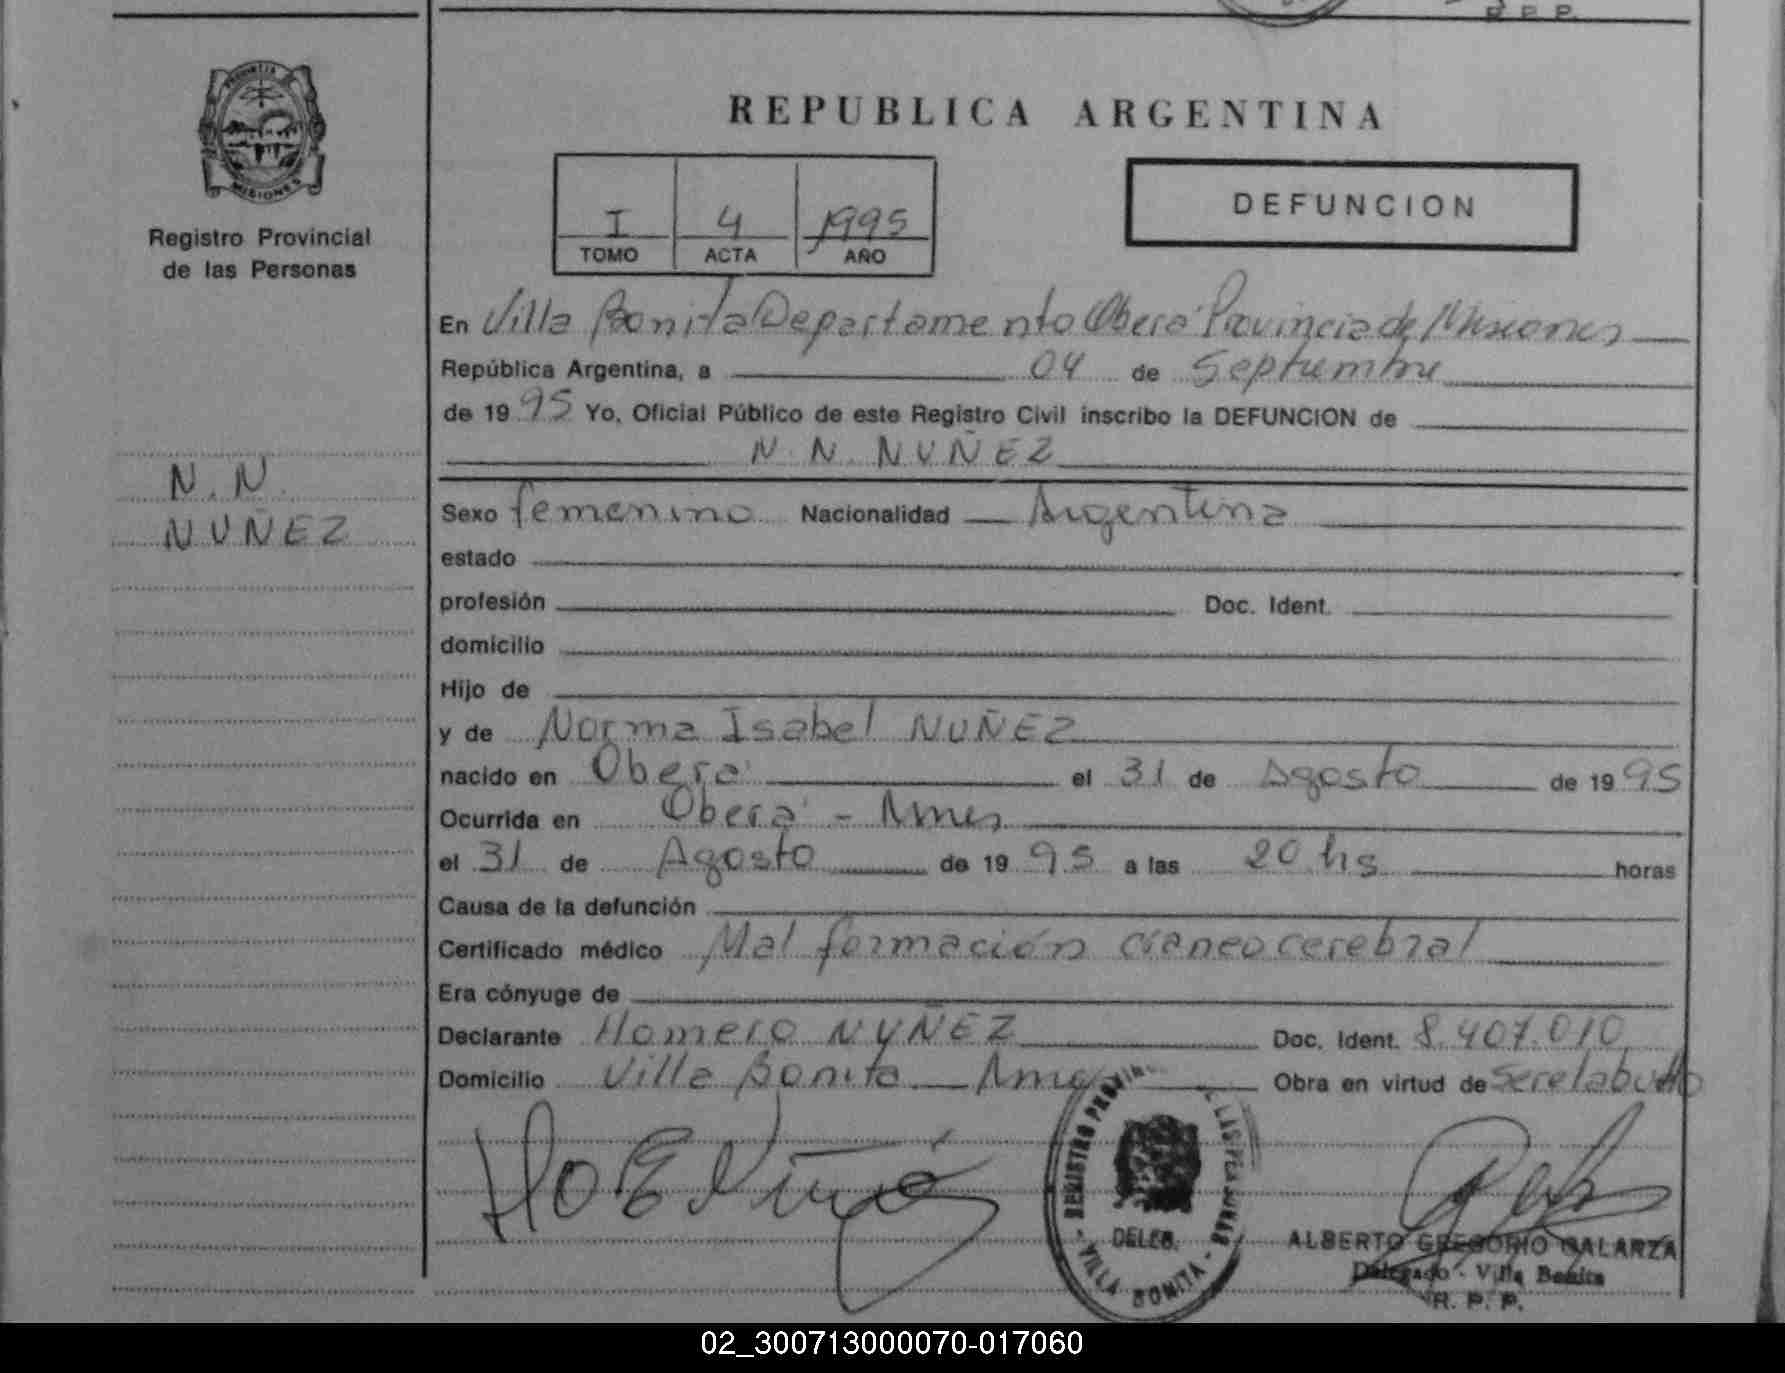 R. P. P.
PROVINCIA
MISIONES
Registro Provincial
de las Personas
N. N.
NUÑEZ
REPUBLICA ARGENTINA
I 4 1995
TOMO ACTA AÑO
DEFUNCION
En Villa Bonita Departamento Oberá Provincia de Misiones
República Argentina, a 04 de Septiembre
de 19 95 Yo, Oficial Público de este Registro Civil inscribo la DEFUNCION de
N. N. NUÑEZ
Sexo femenino Nacionalidad Argentina
estado
profesión Doc. Ident.
domicilio
Hijo de
y de Norma Isabel NUÑEZ
nacido en Oberá el 31 de Agosto de 19 95
Ocurrida en Oberá - Mnes
el 31 de Agosto de 19 95 a las 20 hs horas
Causa de la defunción
Certificado médico Mal formación craneo cerebral
Era cónyuge de
Declarante Homero NUÑEZ Doc. Ident. 8.407.010
Domicilio Villa Bonita Mnes Obra en virtud de
REGISTRO PROVIN. DE LAS PERSONAS
DELEG.
- VILLA BONITA -
ALBERTO GREGORIO GALARZA
Delegado - Villa Bonita
R. P. P.
02_300713000070-017060